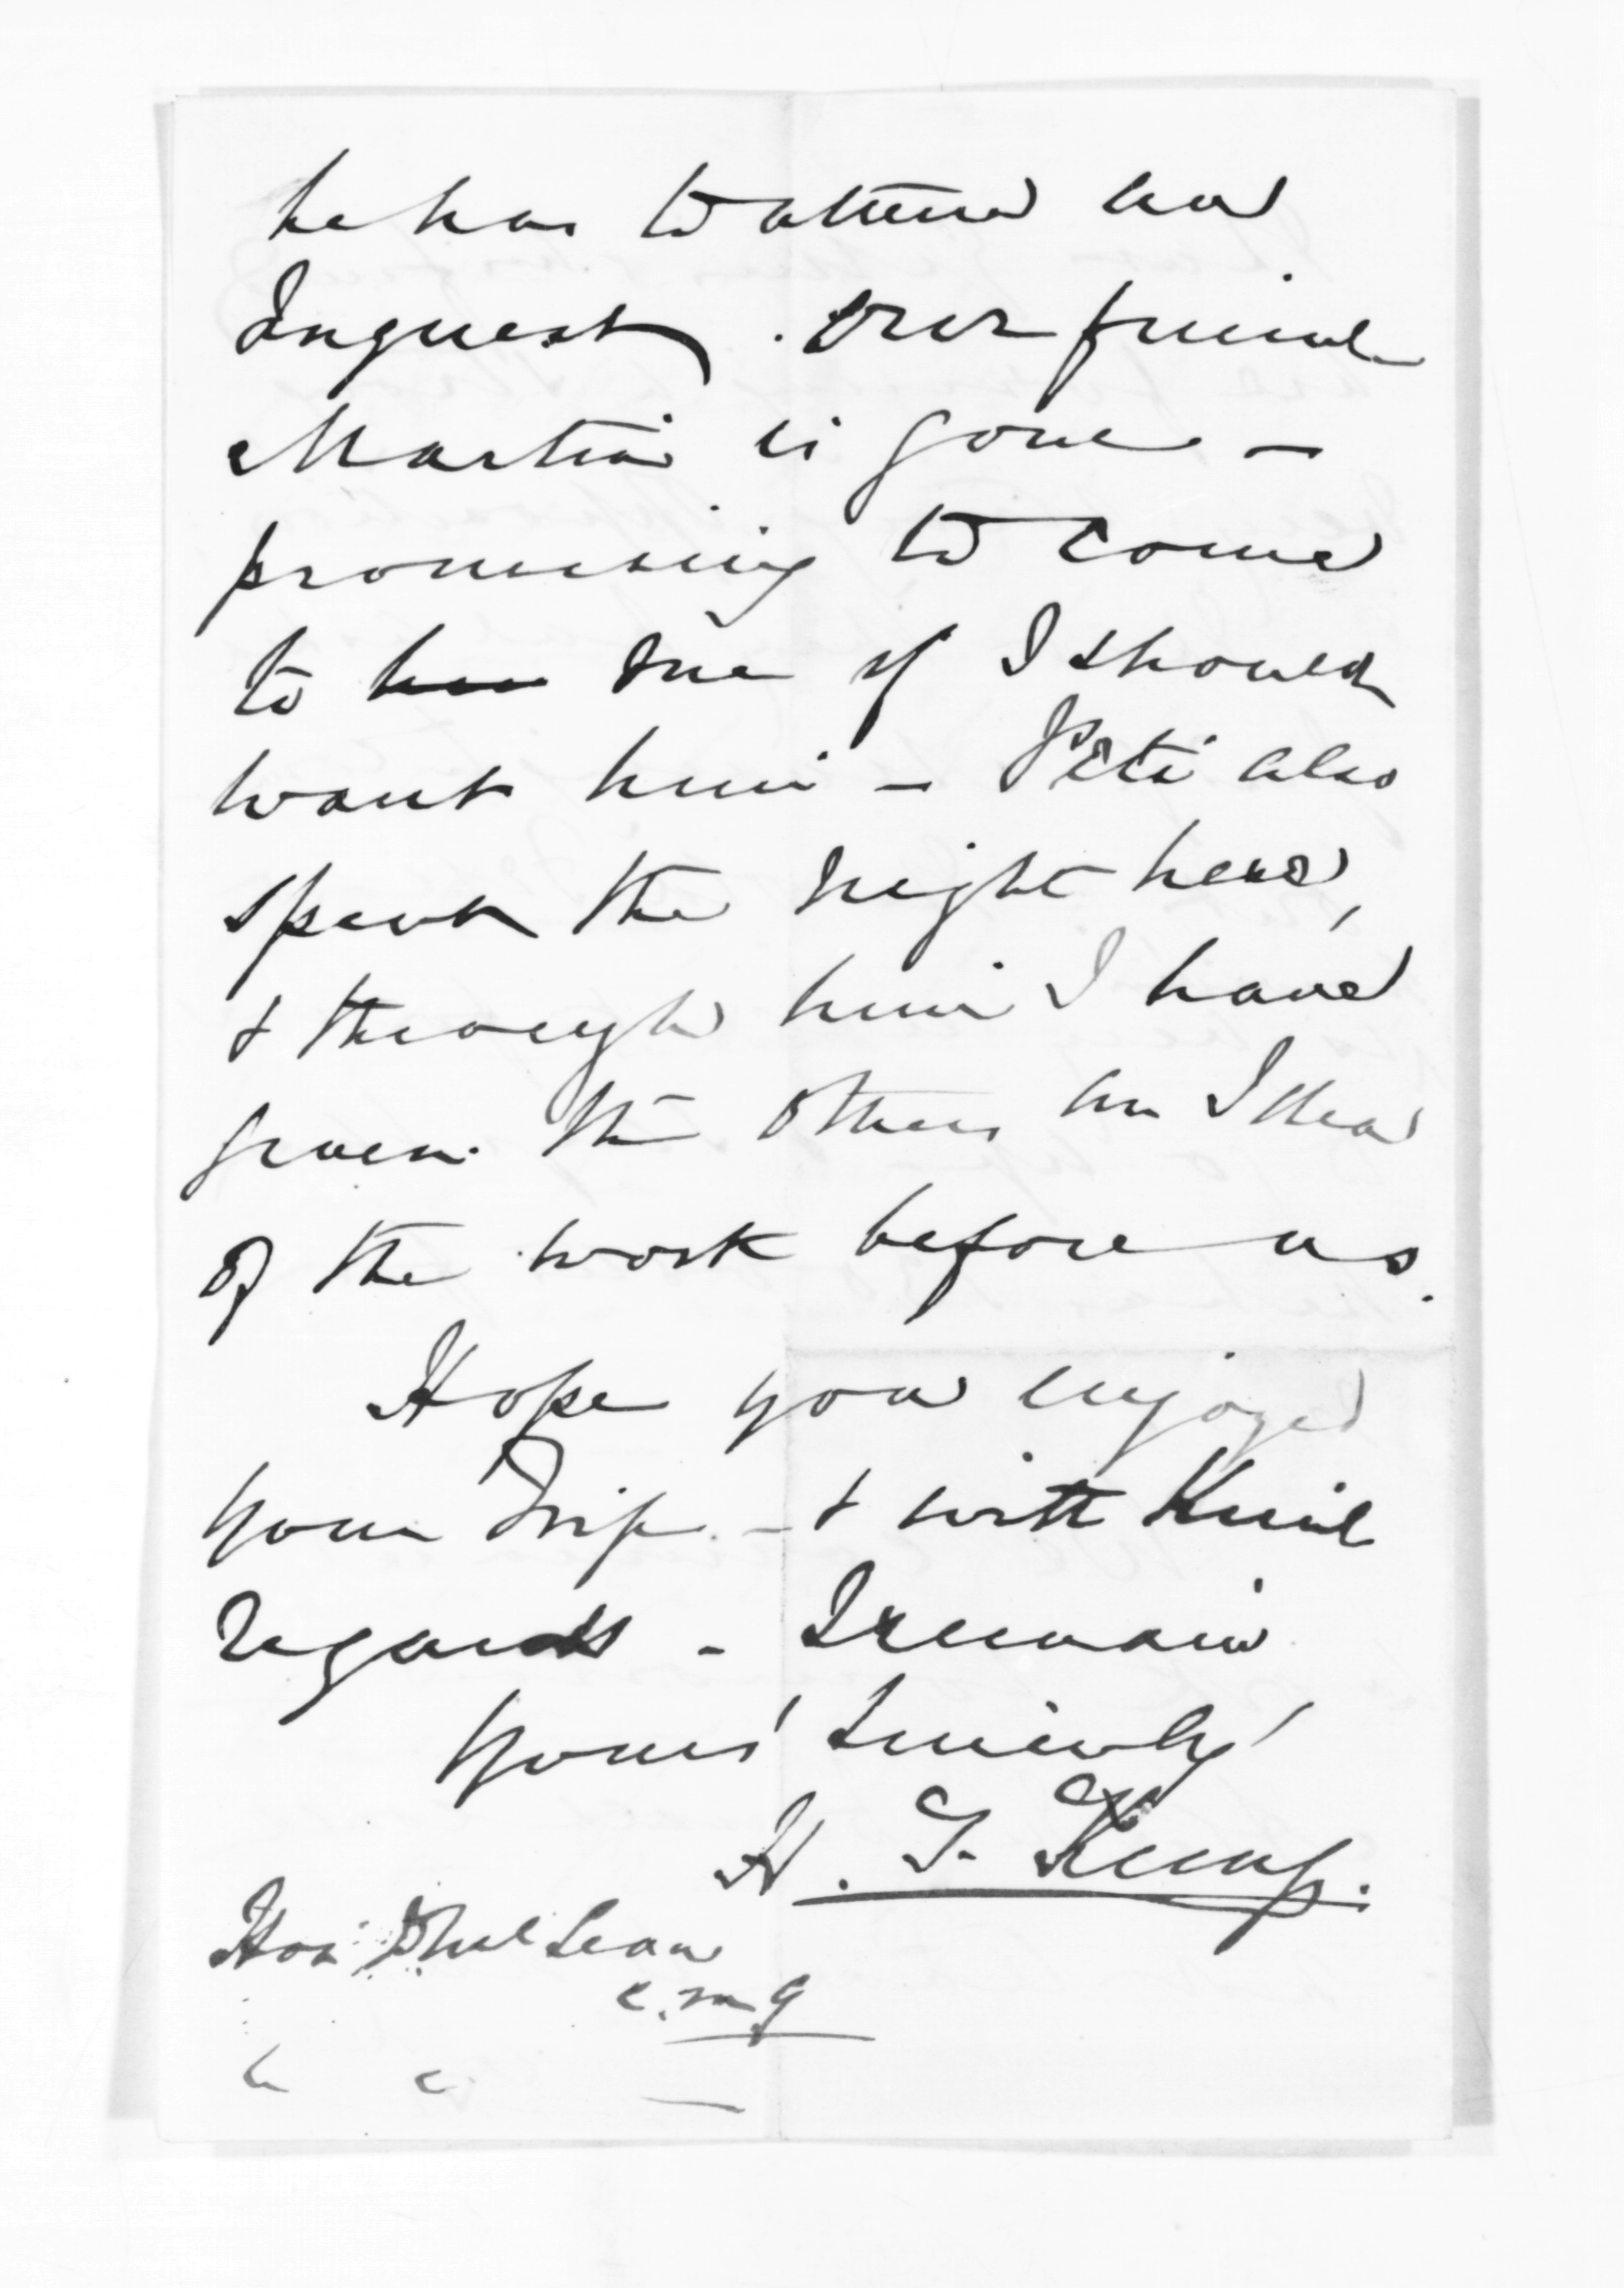 he has to attend an
Inquest. Our friend
Martin is gone —
promising to come
to me if I should
want him — Piti also
spent the night here,
& through him I have
given the others an Idea
of the work before us.
Hope you enjoyed
your Trip — & with Kind
regards — I remain
Yours Sincerely
H. T. Kemp.
Hon: D McLean
c.m.g